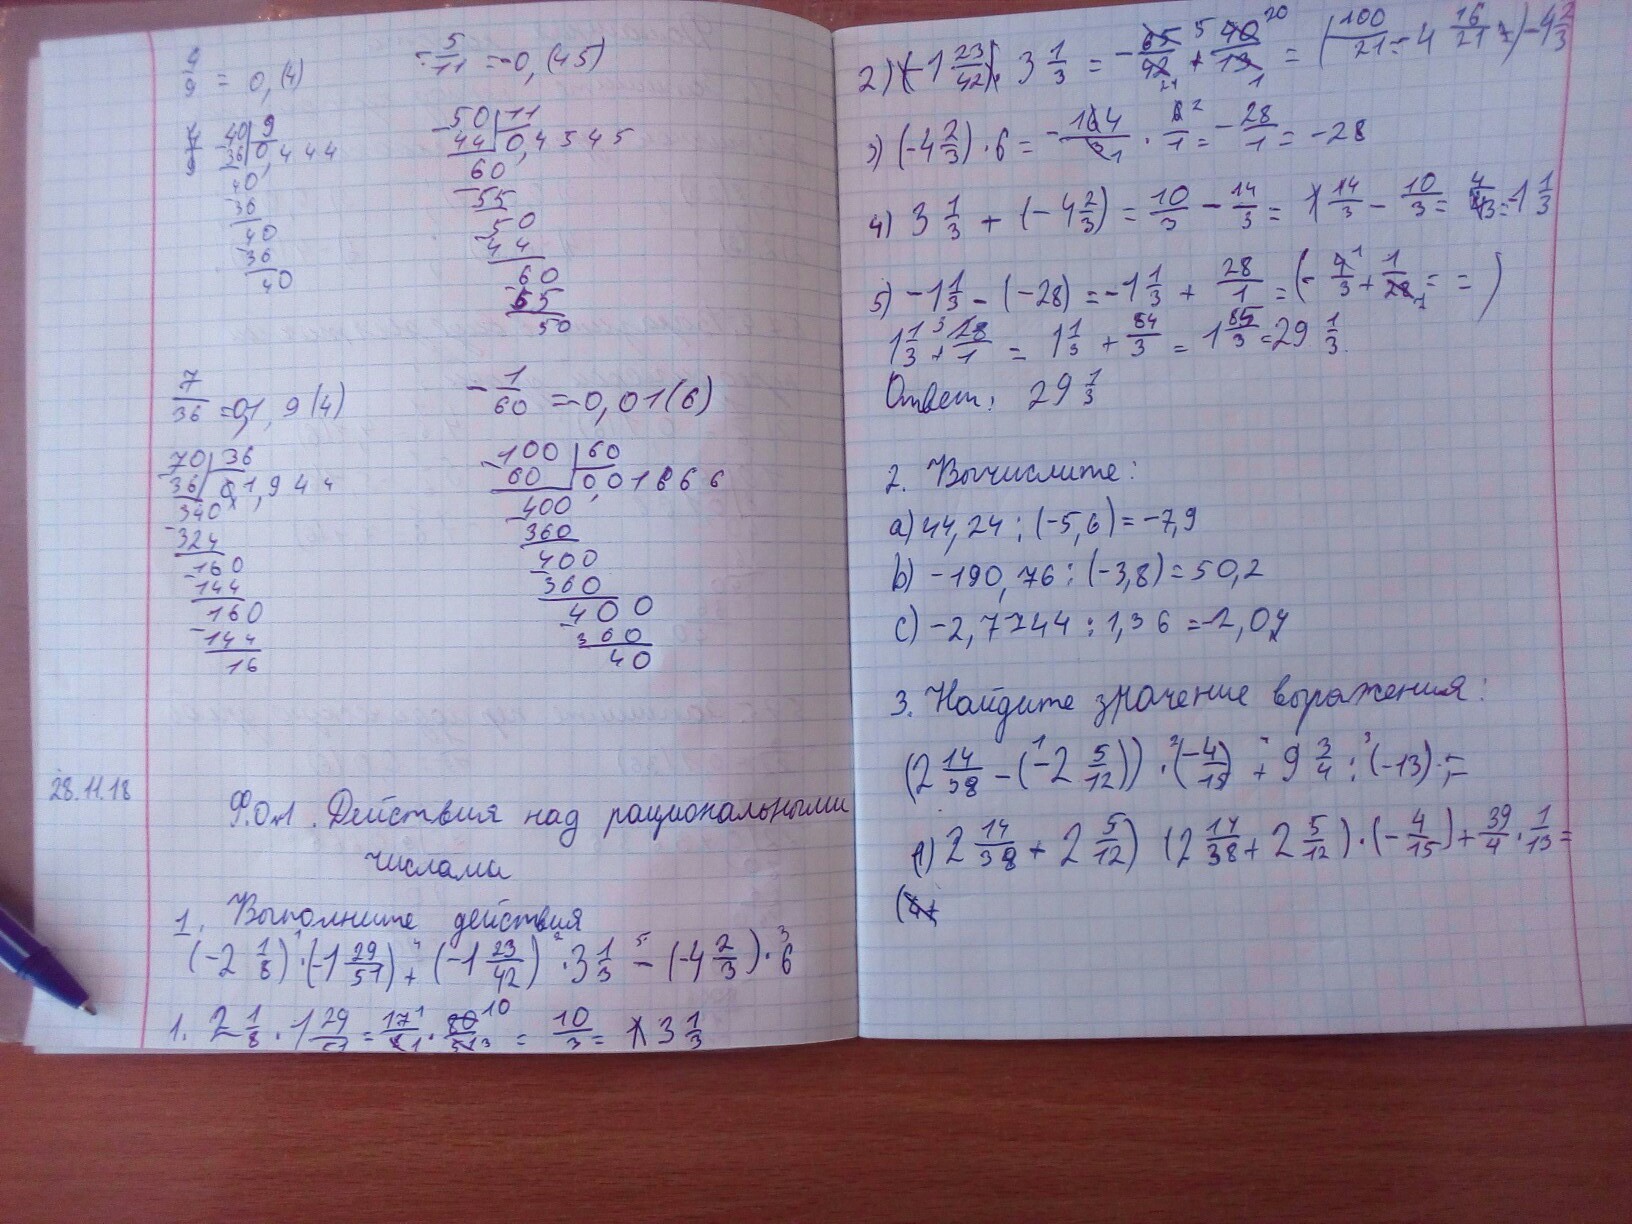 4/9 = 0,(4)
-5/11 = -0,(45)
40 | 9
36 | 0,444
40
36
40
36
40
50 | 11
44 | 0,4545
60
55
50
44
60
55
50
7/36 = 0,19(4)
-1/60 = -0,01(6)
70 | 36
36 | 0,1944
340
324
160
144
160
144
16
100 | 60
60 | 0,01666
400
360
400
360
400
360
40
28.11.18
Ф.О.№1. Действия над рациональными
числами
1. Выполните действия
(-2 1/8) · (-1 29/51) + (-1 23/42) · 3 1/3 - (-4 2/3) · 6
1. 2 1/8 · 1 29/51 = 17/8 · 80/51 = 10/3 = 3 1/3
2) (-1 23/42) · 3 1/3 = -65/42 + 40/13 = (100/21 = 4 16/21) -4 2/3
3) (-4 2/3) · 6 = -14/3 · 6/1 = -28/1 = -28
4) 3 1/3 + (-4 2/3) = 10/3 - 14/3 = 14/3 - 10/3 = 4/3 = -1 1/3
5) -1 1/3 - (-28) = -1 1/3 + 28/1 = (-4/3 + 1/28 = = )
1 1/3 + 28/1 = 1 1/3 + 84/3 = 1 85/3 = 29 1/3.
Ответ: 29 1/3
2. Вычислите:
a) 44,24 : (-5,6) = -7,9
b) -190,76 : (-3,8) = 50,2
c) -2,7744 : 1,36 = -2,04
3. Найдите значение выражения:
(2 14/38 - (-2 5/12)) · (-4/15) + 9 3/4 : (-13) =
1) 2 14/38 + 2 5/12) (2 14/38 + 2 5/12) · (-4/15) + 39/4 · 1/13 =